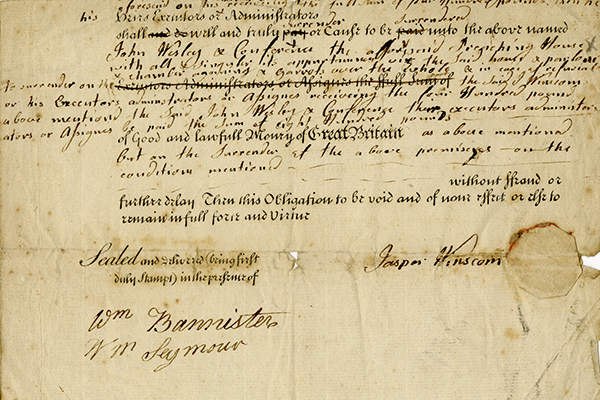 aforesaid on his receiving the full sum of
his Heirs Executors or Administrators
surrender Surrendered
shall and do well and truly pay or Cause to be paid unto the above named
John Wesley & Conference the aforesaid Preaching House
with all its appurtenances viz the said house & yard
chamber over the
to surrender on the Executors Administrators or Assignes the full Sum of the Said Winscom
or his Executors administrators or Assignes receiving the four Hundred pound
above mentioned the Said John Wesley & Conference their executors administr
ators or Assignes be paid the Sum of eight Hundred pounds
of Good and lawfull Money of Great Britain as above mentioned
but on the Surrender of the above premises on the
conditions mentioned
without Fraud or
further delay Then this Obligation to be void and of none effect or else to
remain in full force and Virtue
Sealed and delivered (being first
duly Stampt) in the presence of
Jasper Winscom
Wm Bannister
Wm Seymour